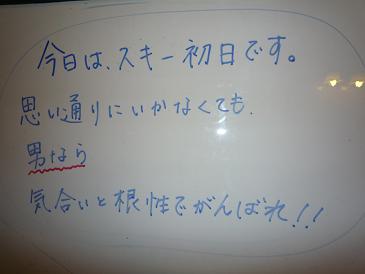 今日は、スキー初日です。
思い通りにいかなくても、
男なら
気合いと根性でがんばれ!!